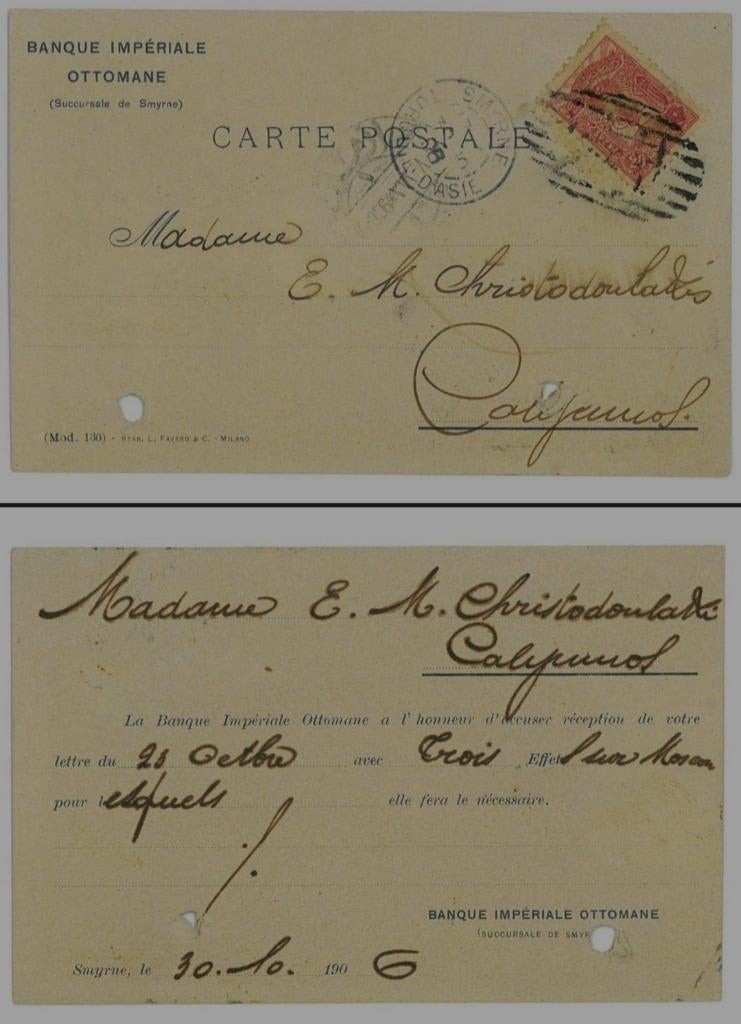 BANQUE IMPÉRIALE
OTTOMANE
(Succursale de Smyrne)
CARTE POSTALE
SMYRNE
TURQUIE D'ASIE
Madame
E. M. Christodoulakis
Calymnos.
(Mod. 130) - STAB. L. FAVERO & C. - MILANO
Madame E. M. Christodoulaki
Calymnos
La Banque Impériale Ottomane a l'honneur d'accuser réception de votre
lettre du 25 Octbre avec Trois Effets sur Moscou
pour lesquels elle fera le nécessaire.
BANQUE IMPÉRIALE OTTOMANE
(SUCCURSALE DE SMYR
Smyrne, le 30.10. 1906